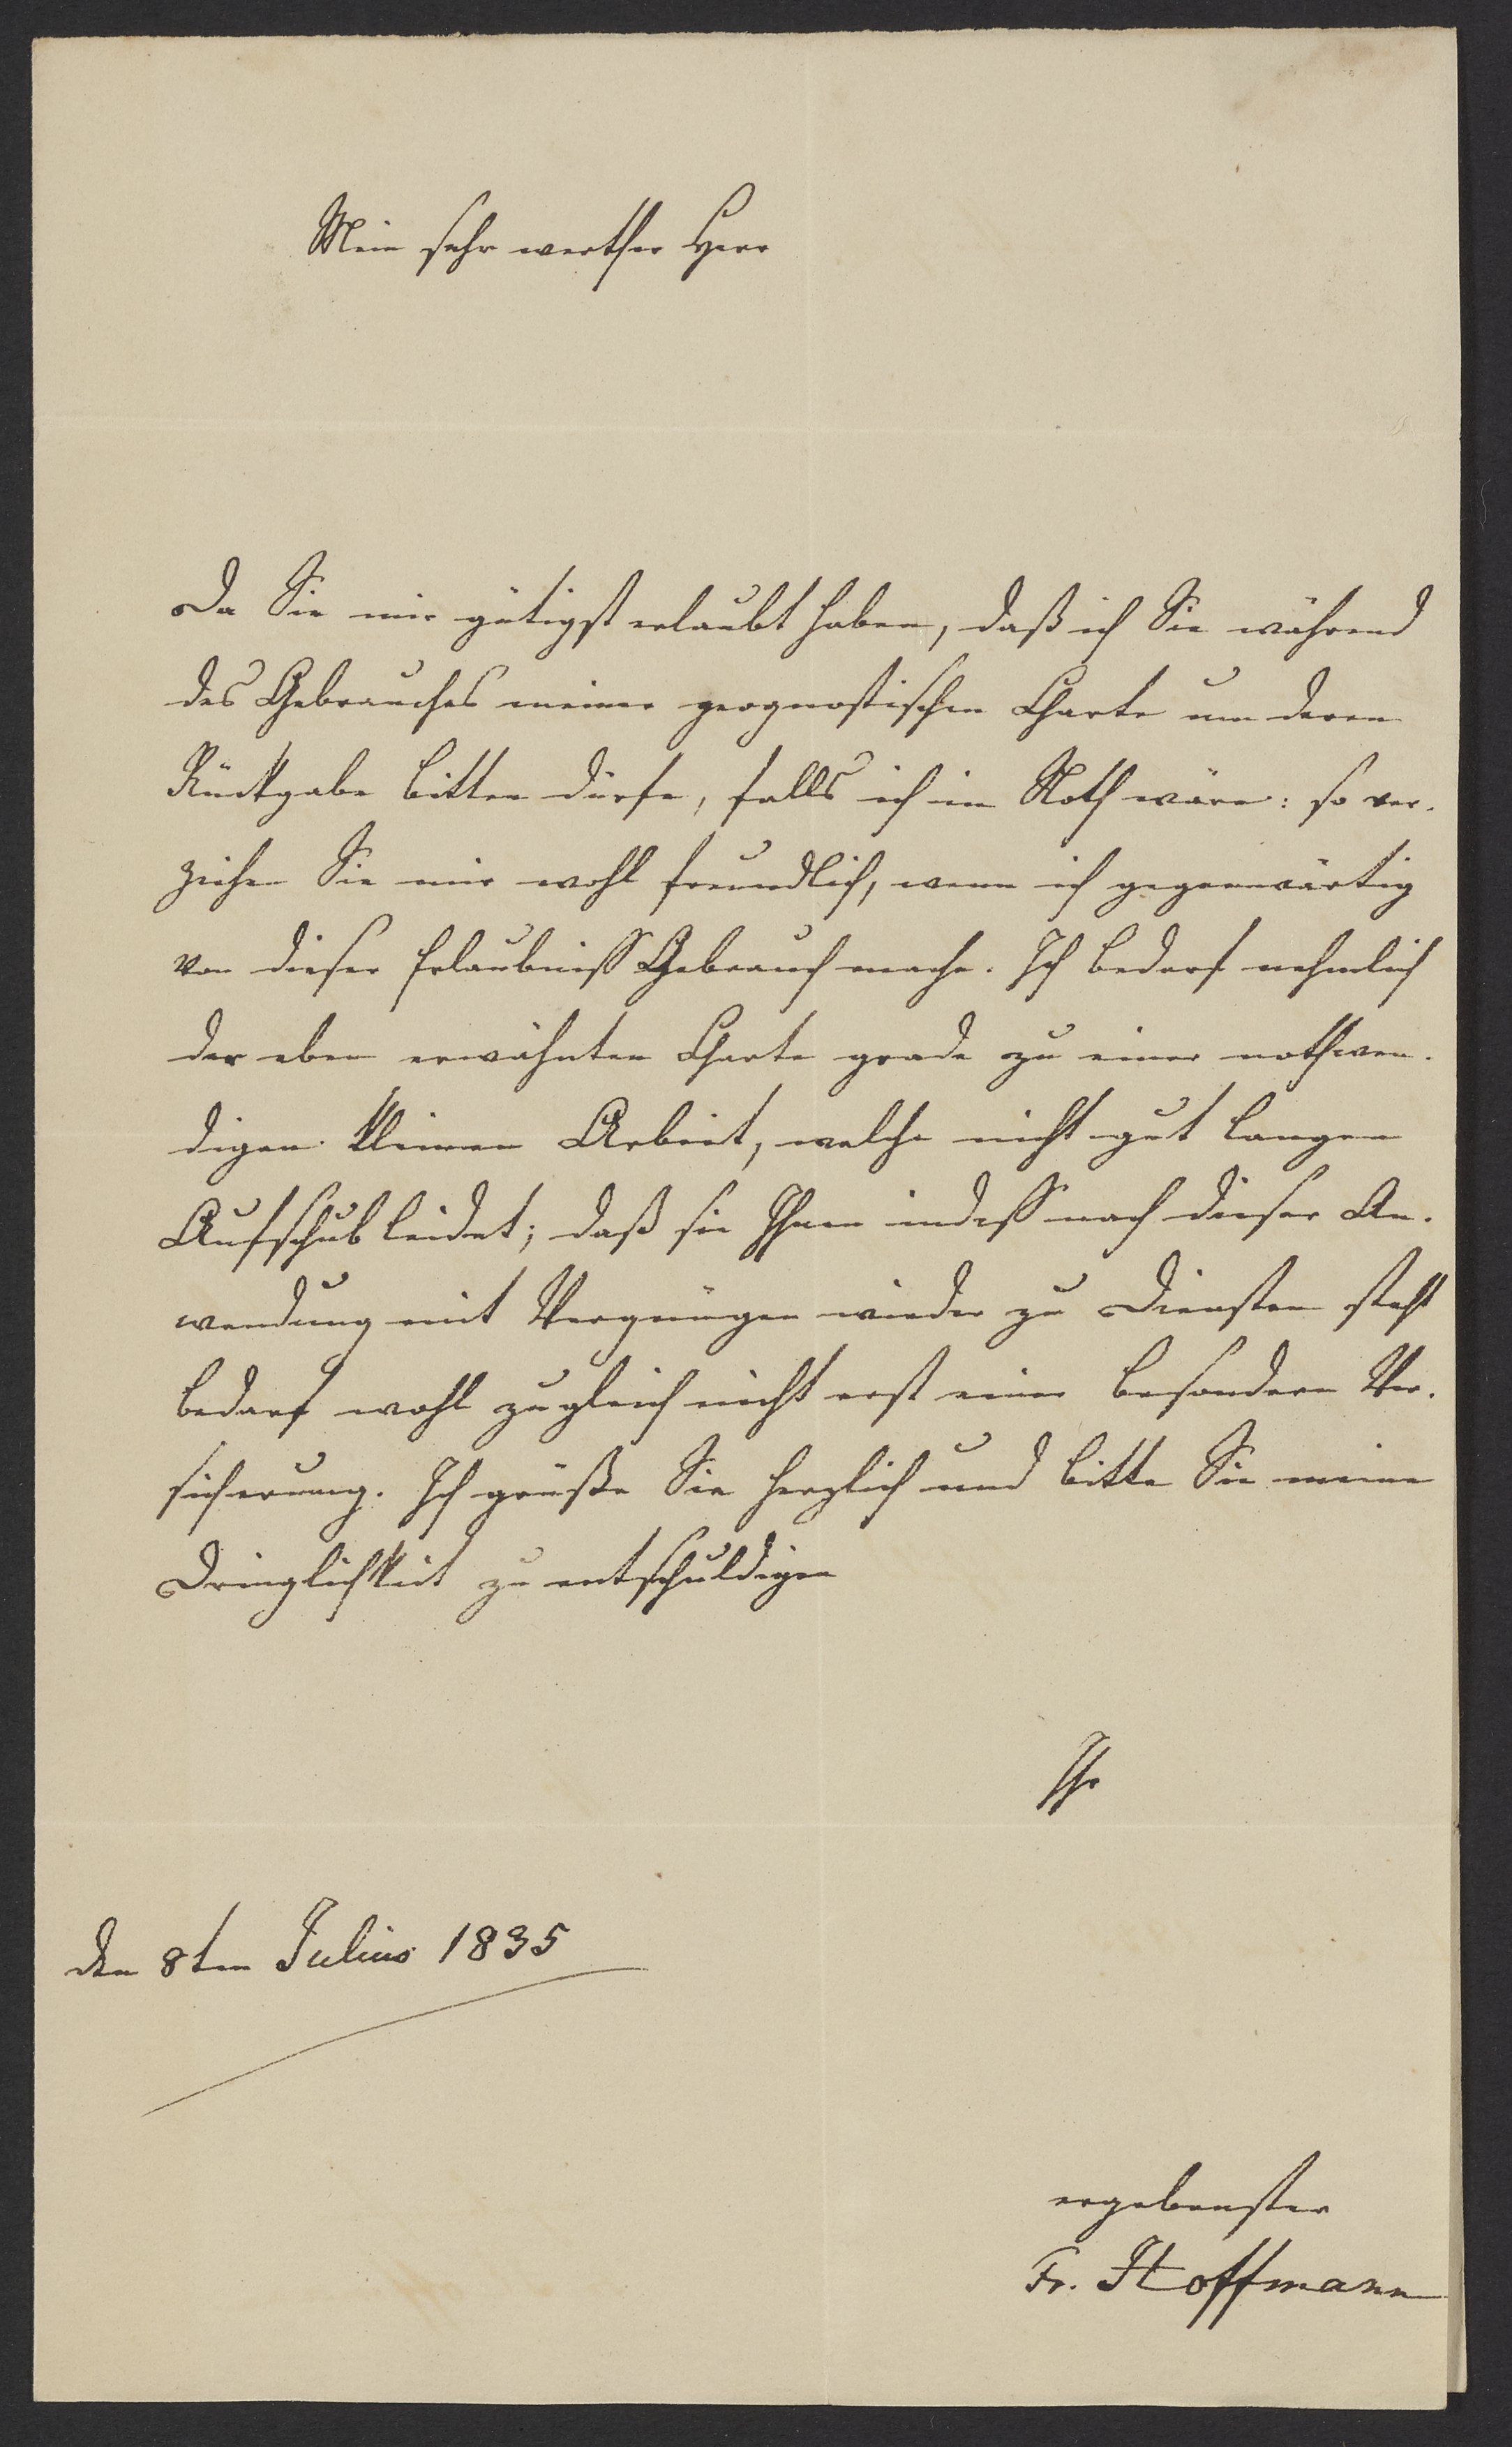 Mein sehr werther Herr
Da Sie mir gütigst erlaubt haben, daß ich Sie während
des Gebrauches meiner geognostischen Charte um deren
Rückgabe bitten dürfe, falls ich in Noth wäre: so ver-
zeihen Sie mir wohl freundlich, wenn ich gegenwärtig
von dieser Erlaubniss Gebrauch mache. Ich bedarf nehmlich
der eben erwähnten Charte grade zu einer nothwen-
digen kleinen Arbeit, welche nicht gut langen
Aufschub leidet; daß sie Ihnen indess nach dieser An-
wendung mit Vergnügen wieder zu Diensten steht
bedarf wohl zugleich nicht erst einer besondern Ver-
sicherung. Ich grüße Sie herzlich und bitte Sie meine
Dringlichkeit zu entschuldigen
Ihr
den 8ten Julius 1835
ergebenster
Fr. Hoffmann